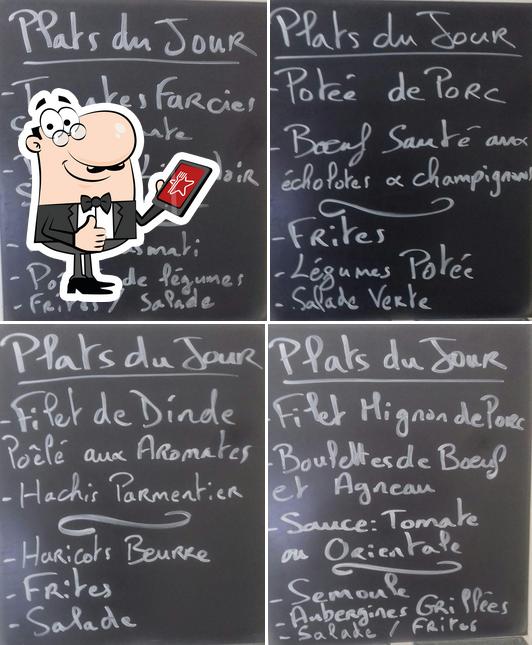 Plats du Jour
Farcies
- Po de légumes
- Frites / Salade
Plats du Jour
- Potée de Porc
- Bœuf Sauté aux
écholotes & champignons
- Frites
- Légumes Potée
- Salade Verte
Plats du Jour
- Filet de Dinde
Poêlé aux Aromates
- Hachis Parmentier
- Haricots Beurre
- Frites
- Salade
Plats du Jour
- Filet Mignon de Porc
- Boulettes de Bœuf
et Agneau
- Sauce: Tomate
ou Orientale
- Semoule
- Aubergines Grillées
- Salade / Frites